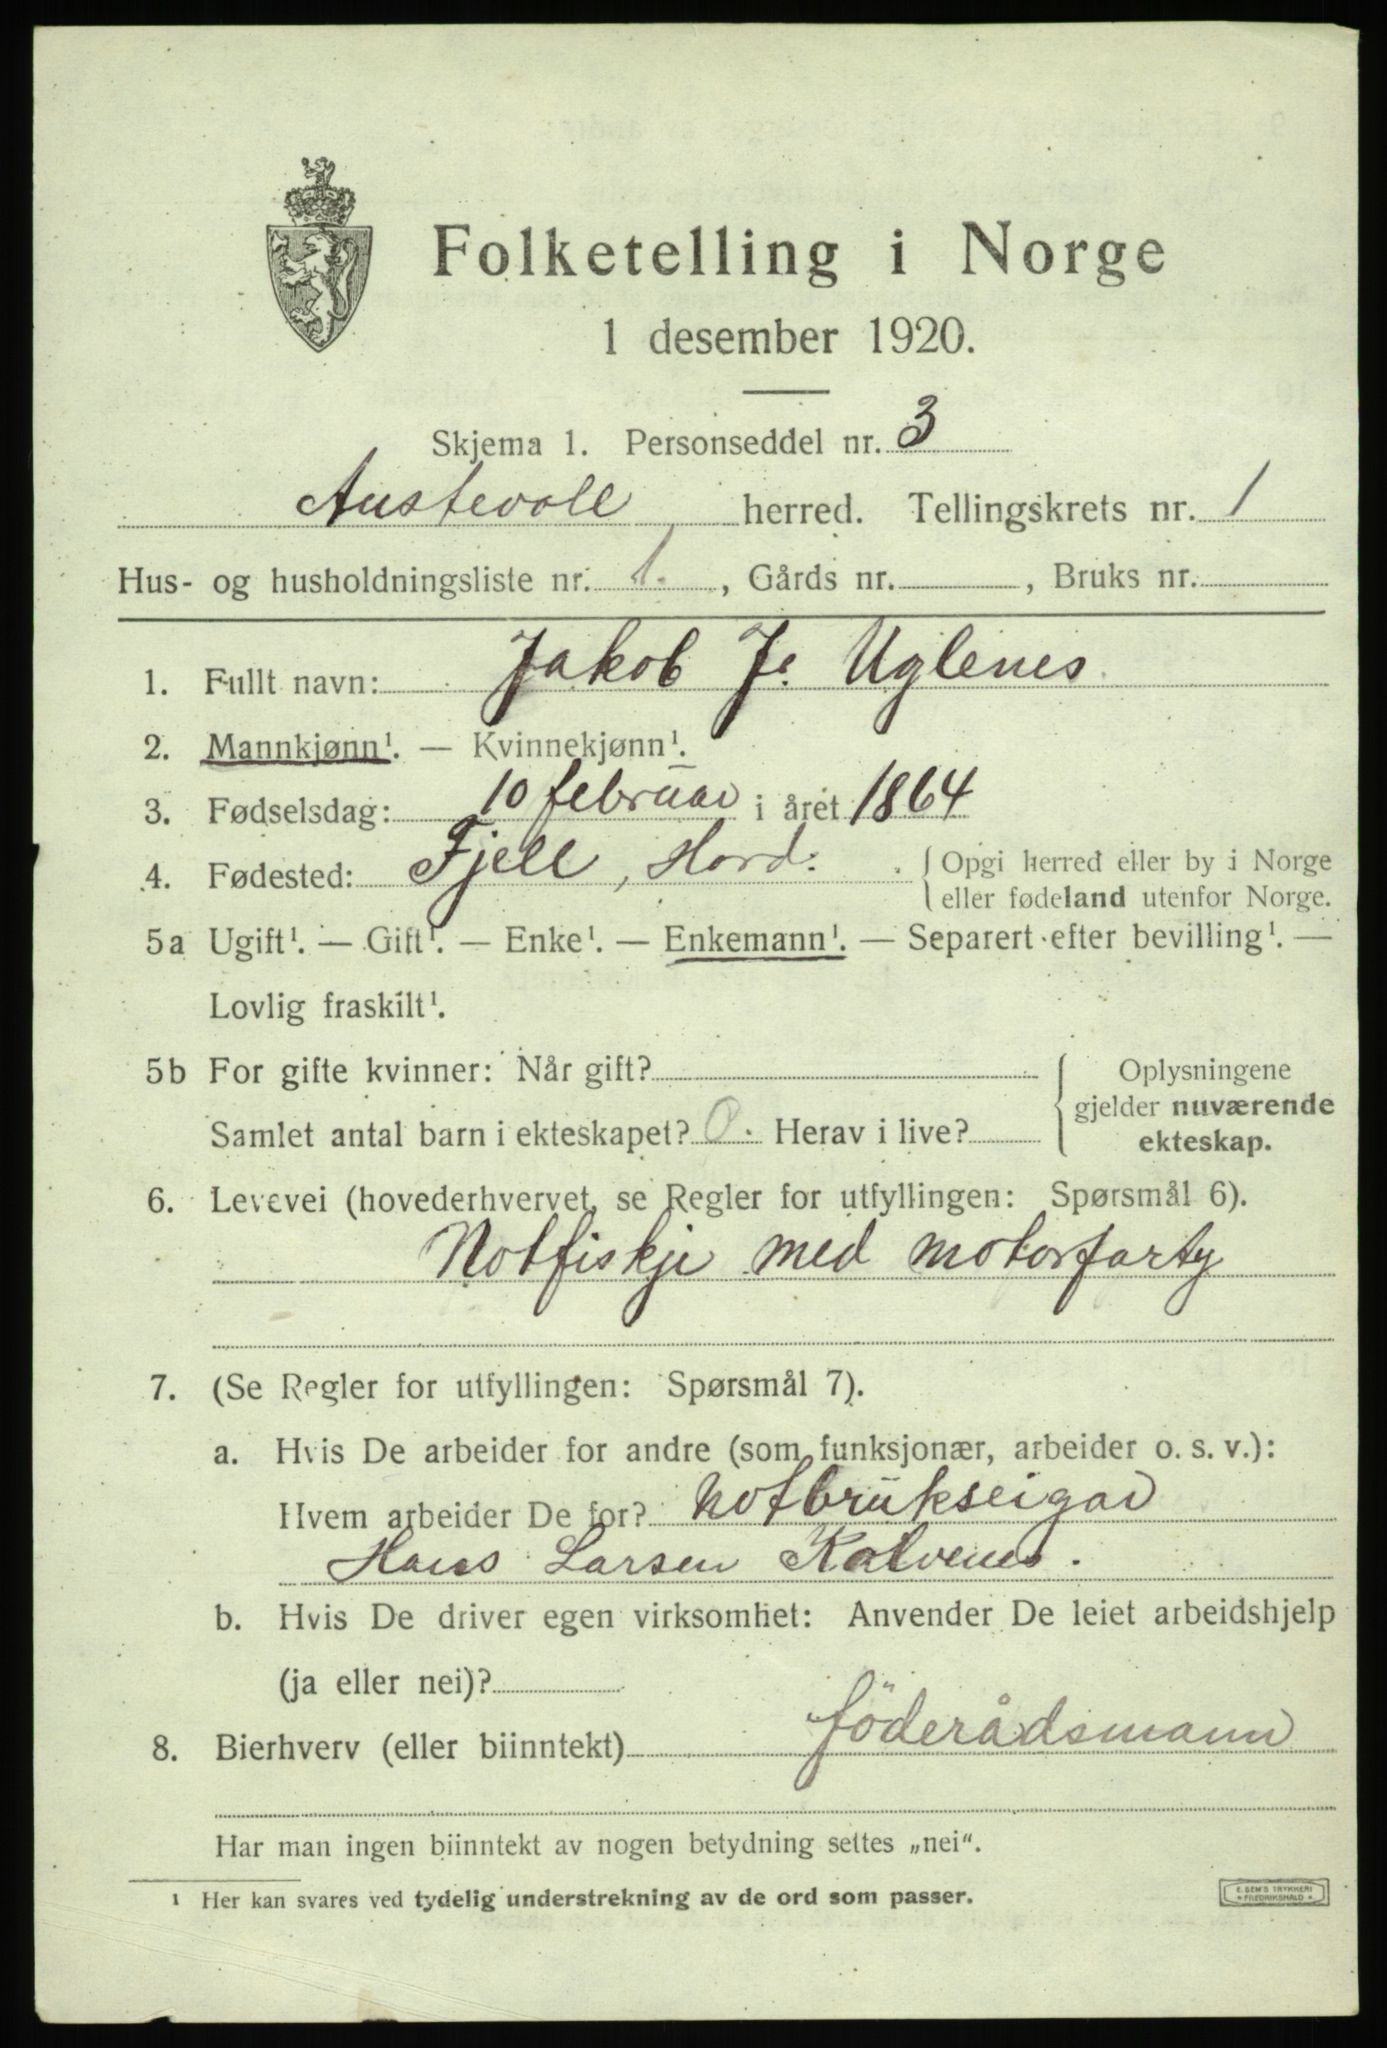 Folketelling i Norge
1 desember 1920.
Skjema 1. Personseddel nr. 3
Austevoll herred. Tellingskrets nr. 1
Hus- og husholdningsliste nr. 1. , Gårds nr. , Bruks nr.
1. Fullt navn: Jakob J. Uglenes
2. Mannkjønn¹. — Kvinnekjønn¹.
3. Fødselsdag: 10 februar i året 1864
4. Fødested: Fjell, Hord. { Opgi herred eller by i Norge
eller fødeland utenfor Norge.
5a Ugift¹. — Gift¹. — Enke¹. — Enkemann¹. — Separert efter bevilling¹. —
Lovlig fraskilt¹.
5b For gifte kvinner: Når gift? Oplysningene
gjelder nuværende
Samlet antal barn i ekteskapet? 0. Herav i live? ekteskap.
6. Levevei (hovederhvervet, se Regler for utfyllingen: Spørsmål 6).
Notfiskje med motorfarty
7. (Se Regler for utfyllingen: Spørsmål 7).
a. Hvis De arbeider for andre (som funksjonær, arbeider o. s. v.):
Hvem arbeider De for? Notbrukseigar
Hans Larsen Kalvenes.
b. Hvis De driver egen virksomhet: Anvender De leiet arbeidshjelp
(ja eller nei)?
8. Bierhverv (eller biinntekt) föderådsmann
Har man ingen biinntekt av nogen betydning settes „nei“.
¹ Her kan svares ved tydelig understrekning av de ord som passer.
E. SEM'S TRYKKERI
FREDRIKSHALD